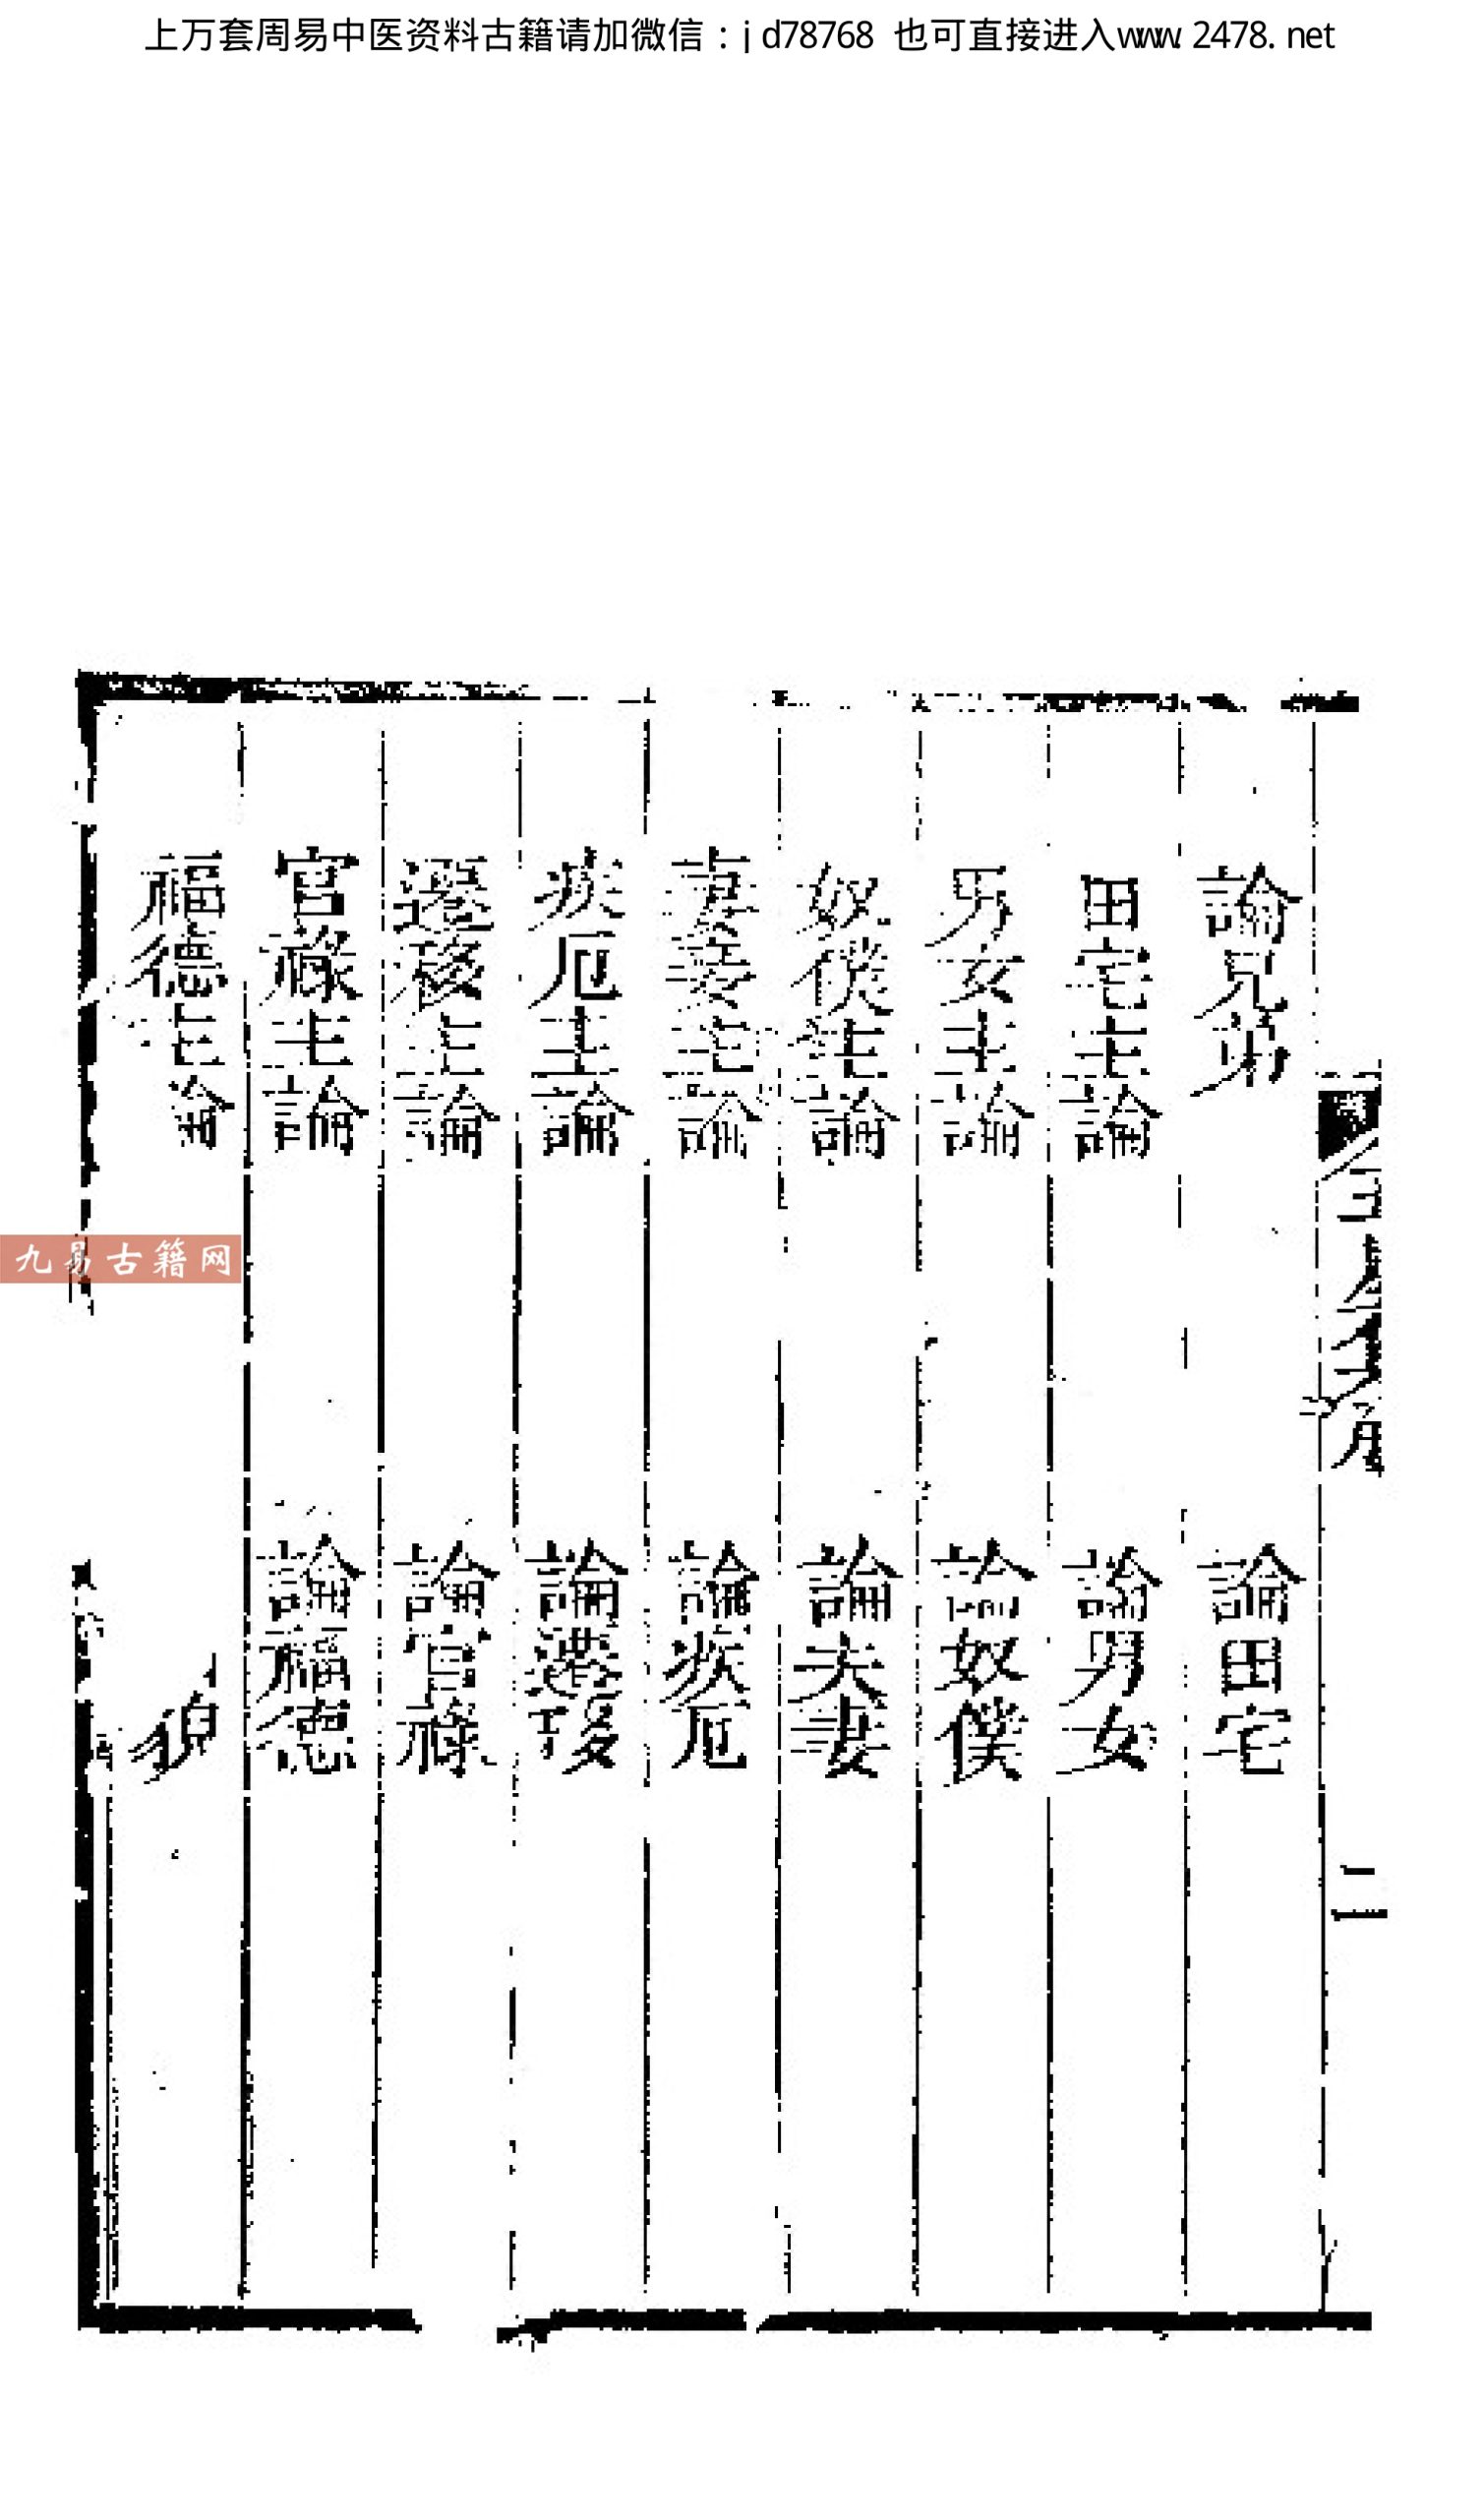 上万套周易中医资料古籍请加微信：jd78768 也可直接进入www.2478.net
論兄弟 論田宅
田宅主論 論男女
男女主論 論奴僕
奴僕主論 論夫妻
妻妾主論 論疾厄
疾厄主論 論遷移
遷移主論 論官祿
官祿主論 論福德
福德主論 貌
二
九易古籍网